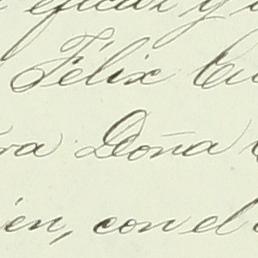 eficaz y
Félix
ra Doña
en, con el